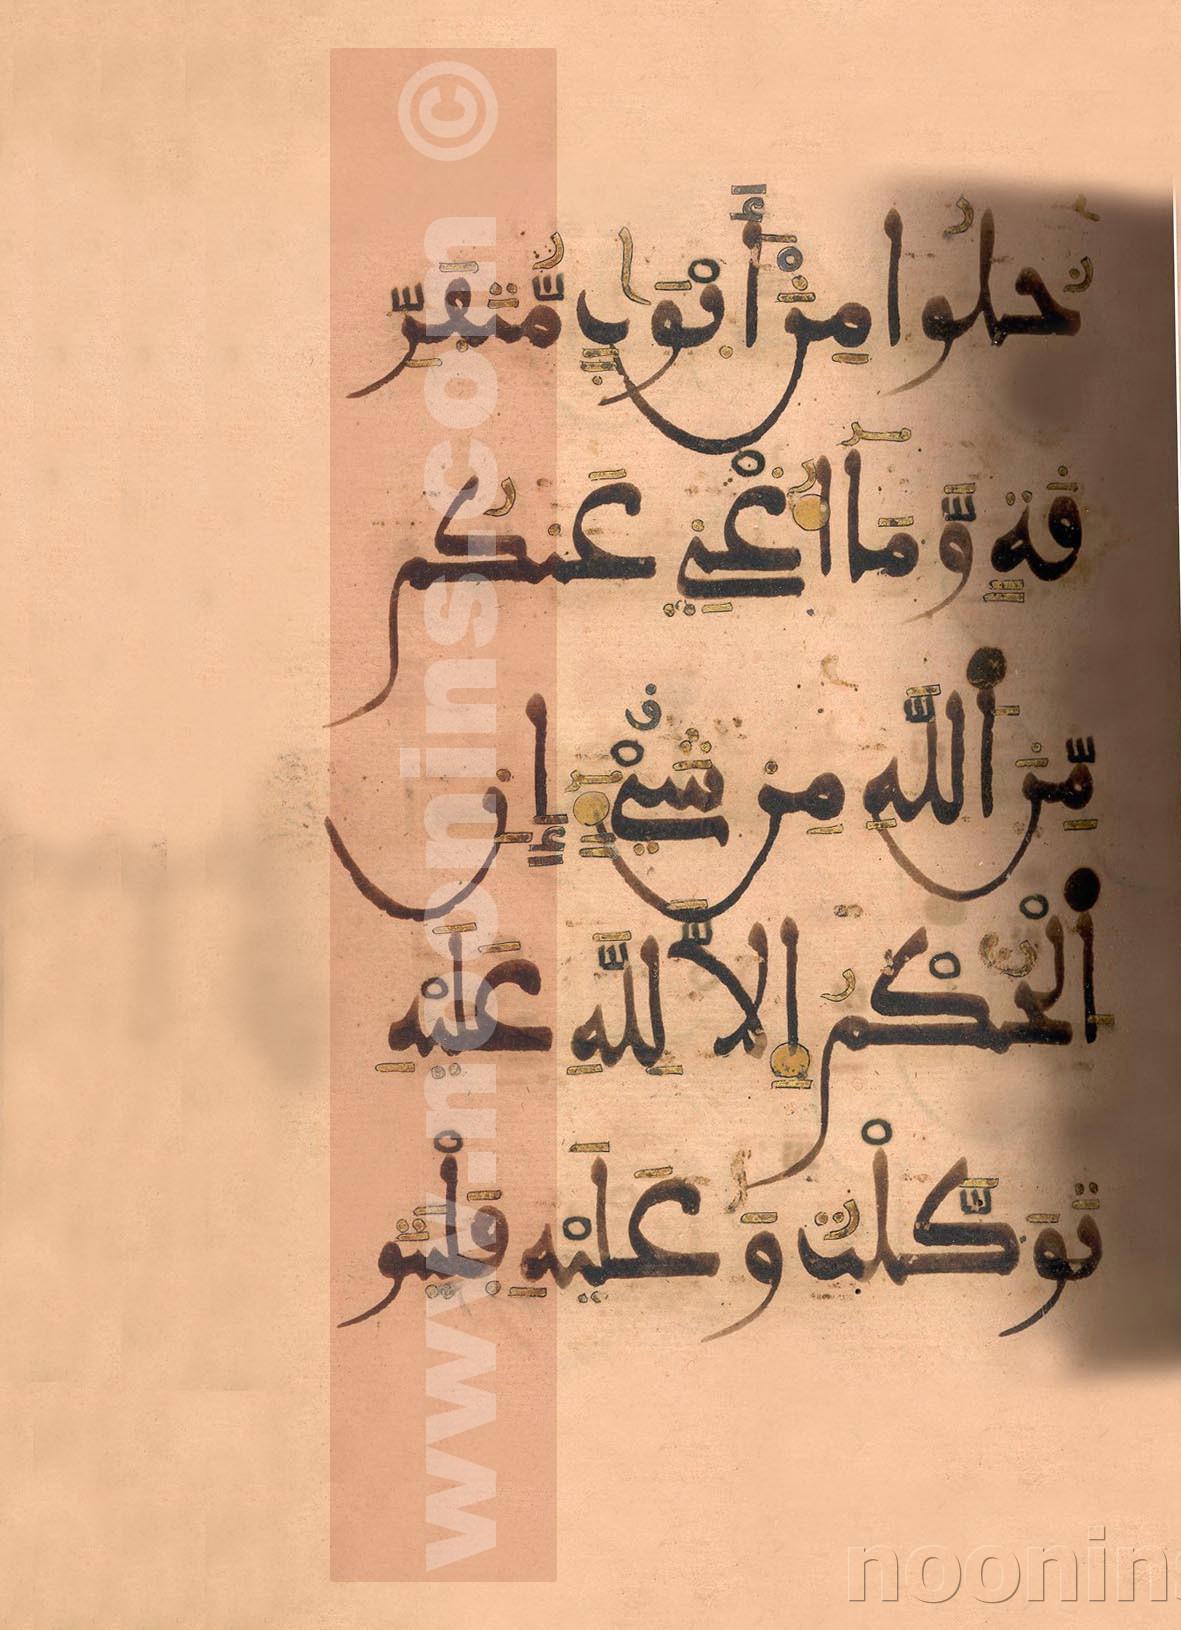 خُلُوا مِنْ أَبْوَٰبٍ مُّتَفَرِّ
قَةٍ وَّمَآ أُغْنِي عَنكُم
مِّنَ ٱللَّهِ مِن شَيْءٍ إِنِ
ٱلْحُكْمُ إِلَّا لِلَّهِ عَلَيْهِ
تَوَكَّلْتُ وَعَلَيْهِ فَلْيَتَو
www.noonins.com ©
noonins